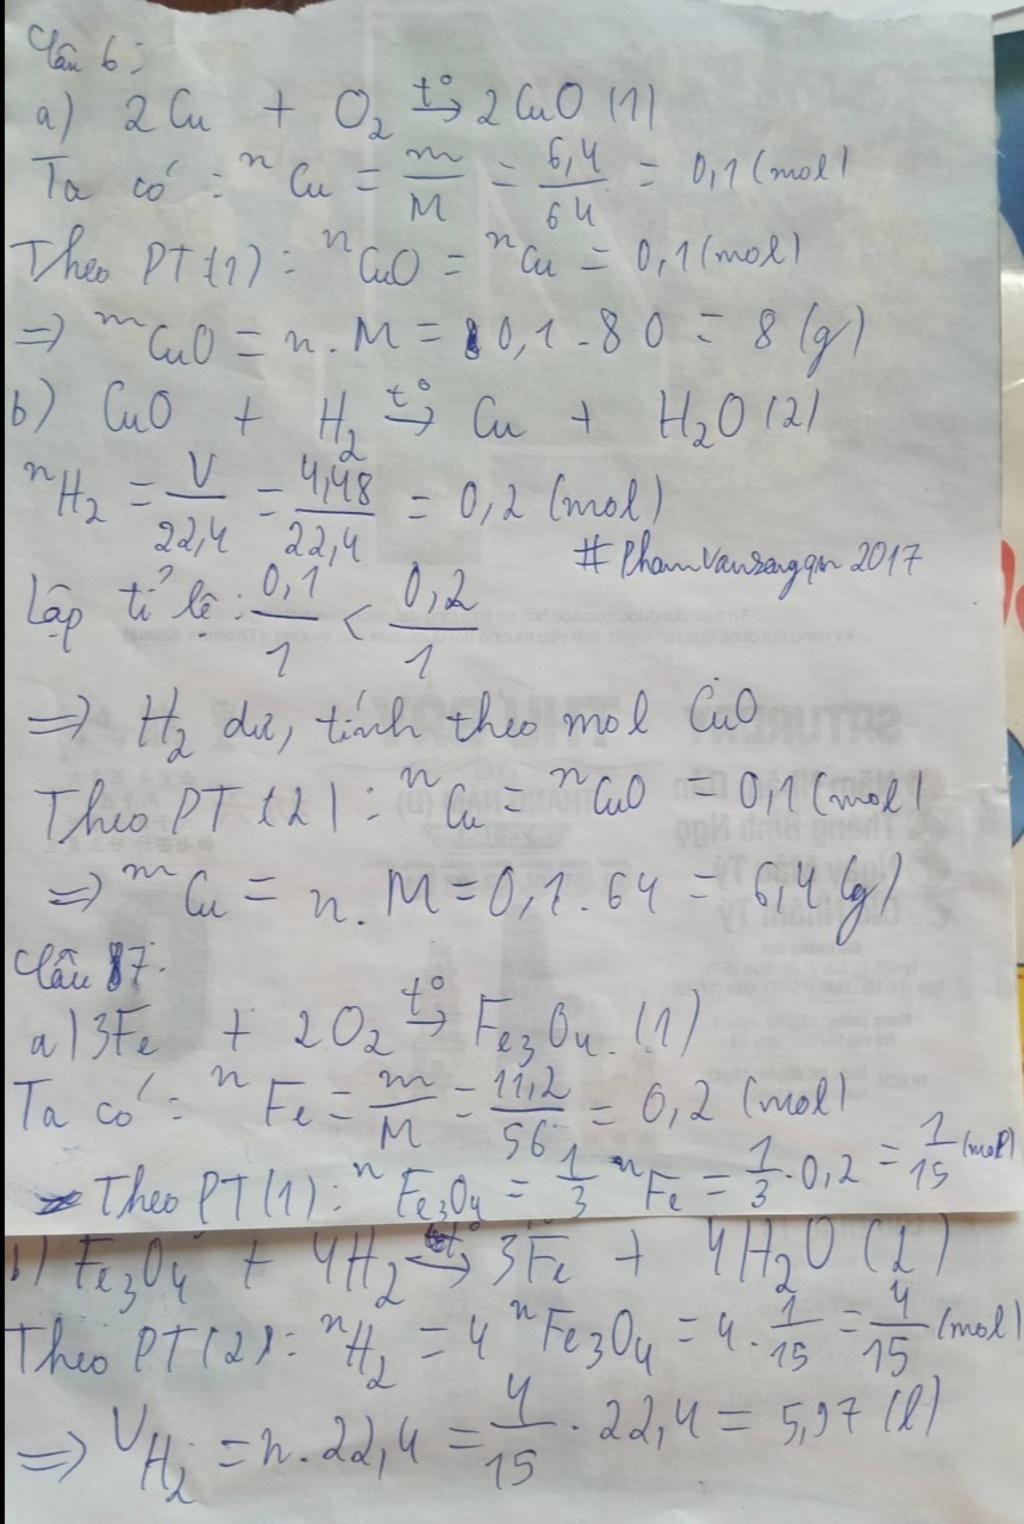 Câu 6:
a) 2Cu + O₂ t°→ 2CuO (1)
Ta có: nCu = m/M = 6,4/64 = 0,1 (mol)
Theo PT(1): nCuO = nCu = 0,1 (mol)
=> mCuO = n.M = 0,1.80 = 8 (g)
b) CuO + H₂ t°→ Cu + H₂O (2)
nH₂ = V/22,4 = 4,48/22,4 = 0,2 (mol)
Lập tỉ lệ: 0,1/1 < 0,2/1
=> H₂ dư, tính theo mol CuO
Theo PT (2): nCu = nCuO = 0,1 (mol)
=> mCu = n.M = 0,1.64 = 6,4 (g)
Câu 7:
a) 3Fe + 2O₂ t°→ Fe₃O₄. (1)
Ta có: nFe = m/M = 11,2/56 = 0,2 (mol)
Theo PT(1): nFe₃O₄ = 1/3 nFe = 1/3.0,2 = 1/15 (mol)
b) Fe₃O₄ + 4H₂ t°→ 3Fe + 4H₂O (2)
Theo PT(2): nH₂ = 4 nFe₃O₄ = 4.1/15 = 4/15 (mol)
=> VH₂ = n.22,4 = 4/15.22,4 = 5,97 (l)